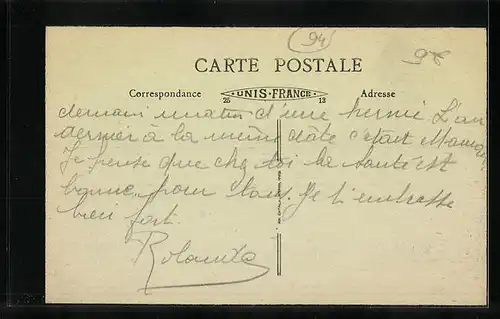 94
98
CARTE POSTALE
Correspondance
UNIS-FRANCE
25 13
Adresse
demain matin d'une hernie L'an
dernier à la même date c'était Maman
Je pense que chez toi la santé est
bonne pour tous. Je t'embrasse
bien fort.
Rolande